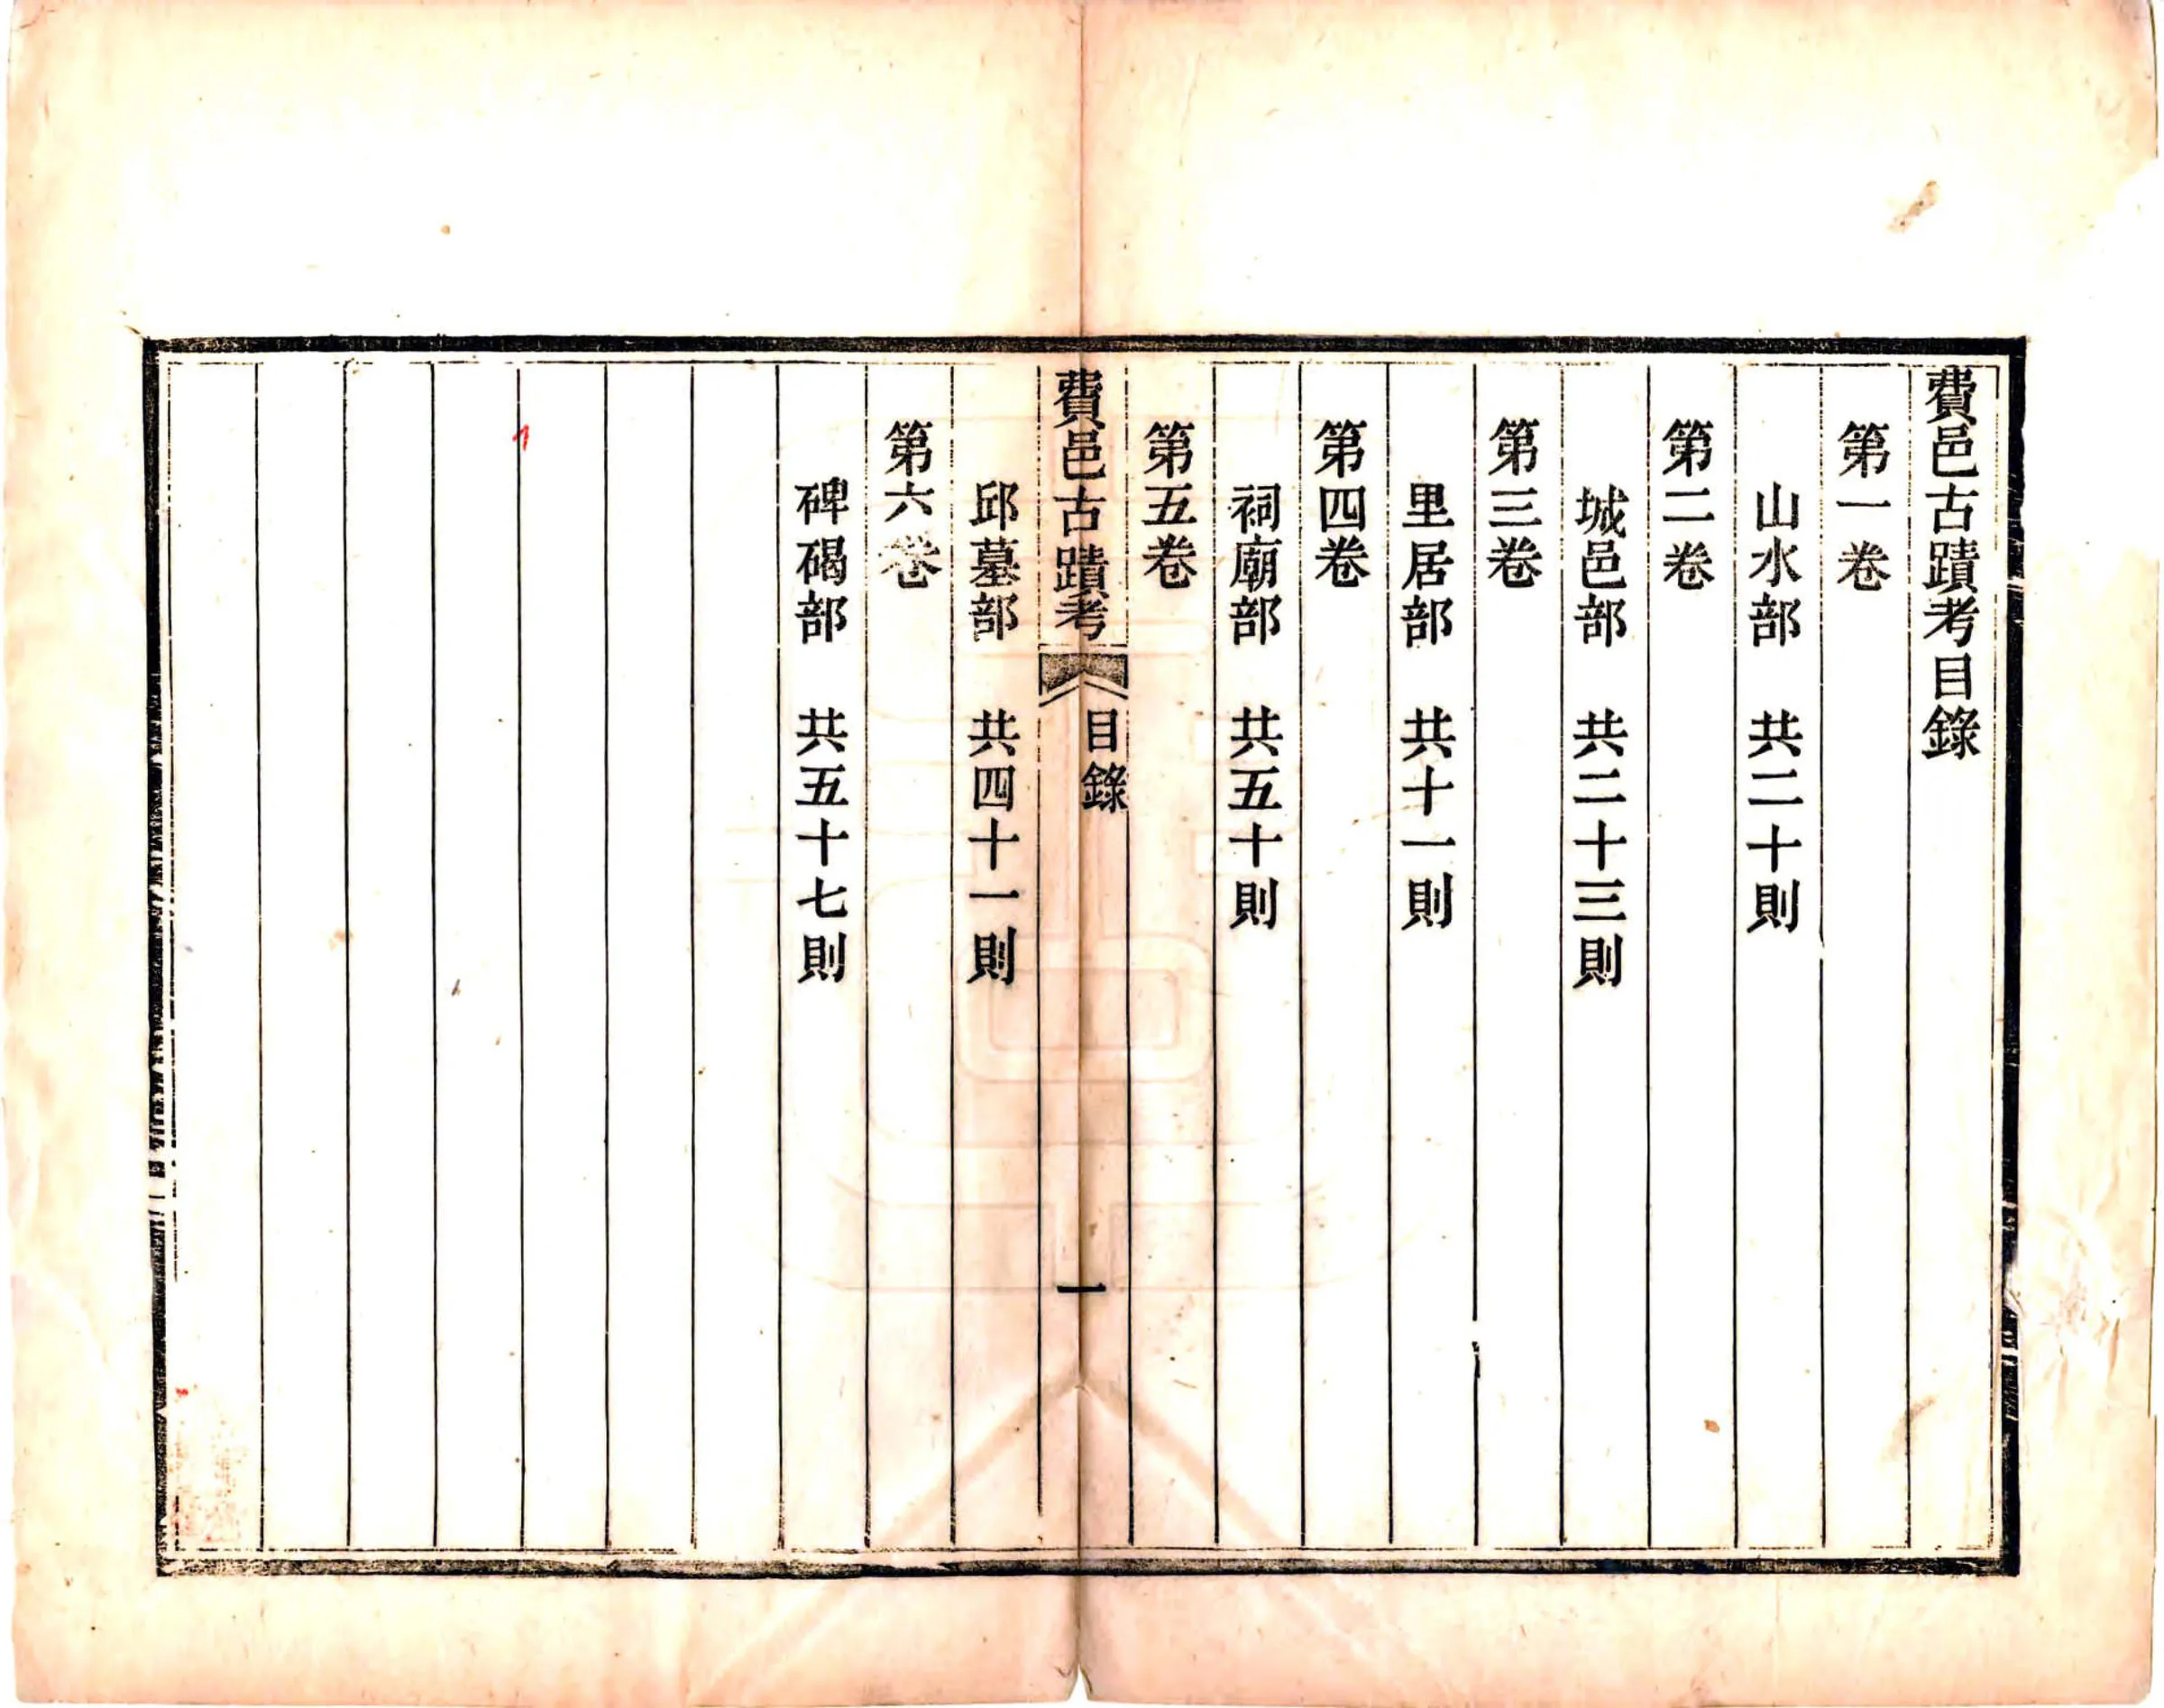 費邑古蹟考目錄
第一卷
山水部　共二十則
第二卷
城邑部　共二十三則
第三卷
里居部　共十一則
第四卷
祠廟部　共五十則
第五卷
費邑古蹟考　目錄　一
邱墓部　共四十一則
第六卷
碑碣部　共五十七則